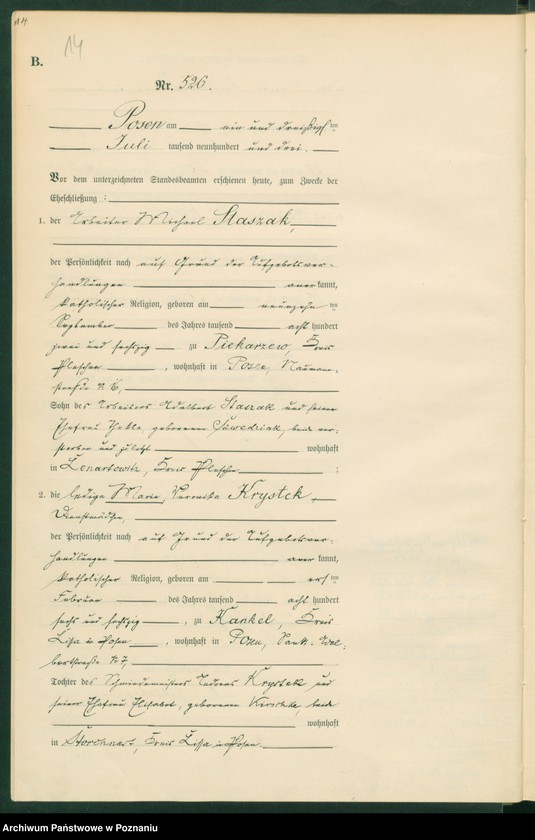 14
14
B.
Nr. 526.
Posen am ein und dreißigsten
Juli tausend neunhundert und drei.
Vor dem unterzeichneten Standesbeamten erschienen heute, zum Zwecke der
Eheschließung:
1. der Arbeiter Michael Staszak,
der Persönlichkeit nach auf Grund der Aufgebotsver-
handlungen anerkannt,
katholischer Religion, geboren am neunzehnten
September des Jahres tausend acht hundert
zwei und sechzig zu Piekarzew, Kreis
Pleschen, wohnhaft in Posen, Naumann-
straße
Sohn des Arbeiters Adalbert Staszak und seiner
Ehefrau geborenen beide ver-
storben und zuletzt wohnhaft
in Lenartowitz, Kreis Pleschen;
2. die ledige Marie, Veronika Krystek,
Dienstmädchen,
der Persönlichkeit nach auf Grund der Aufgebotsver-
handlungen anerkannt,
katholischer Religion, geboren am ersten
Februar des Jahres tausend acht hundert
sechs und sechzig, zu Kankel, Kreis
Lissa in Posen, wohnhaft in Posen, Sankt Adal-
bertstraße N 7,
Tochter des Schmiedemeisters Andreas Krystek und
seiner Ehefrau Elisabet, geborenen beide
wohnhaft
in Storchnest, Kreis Lissa in Posen.
Archiwum Państwowe w Poznaniu